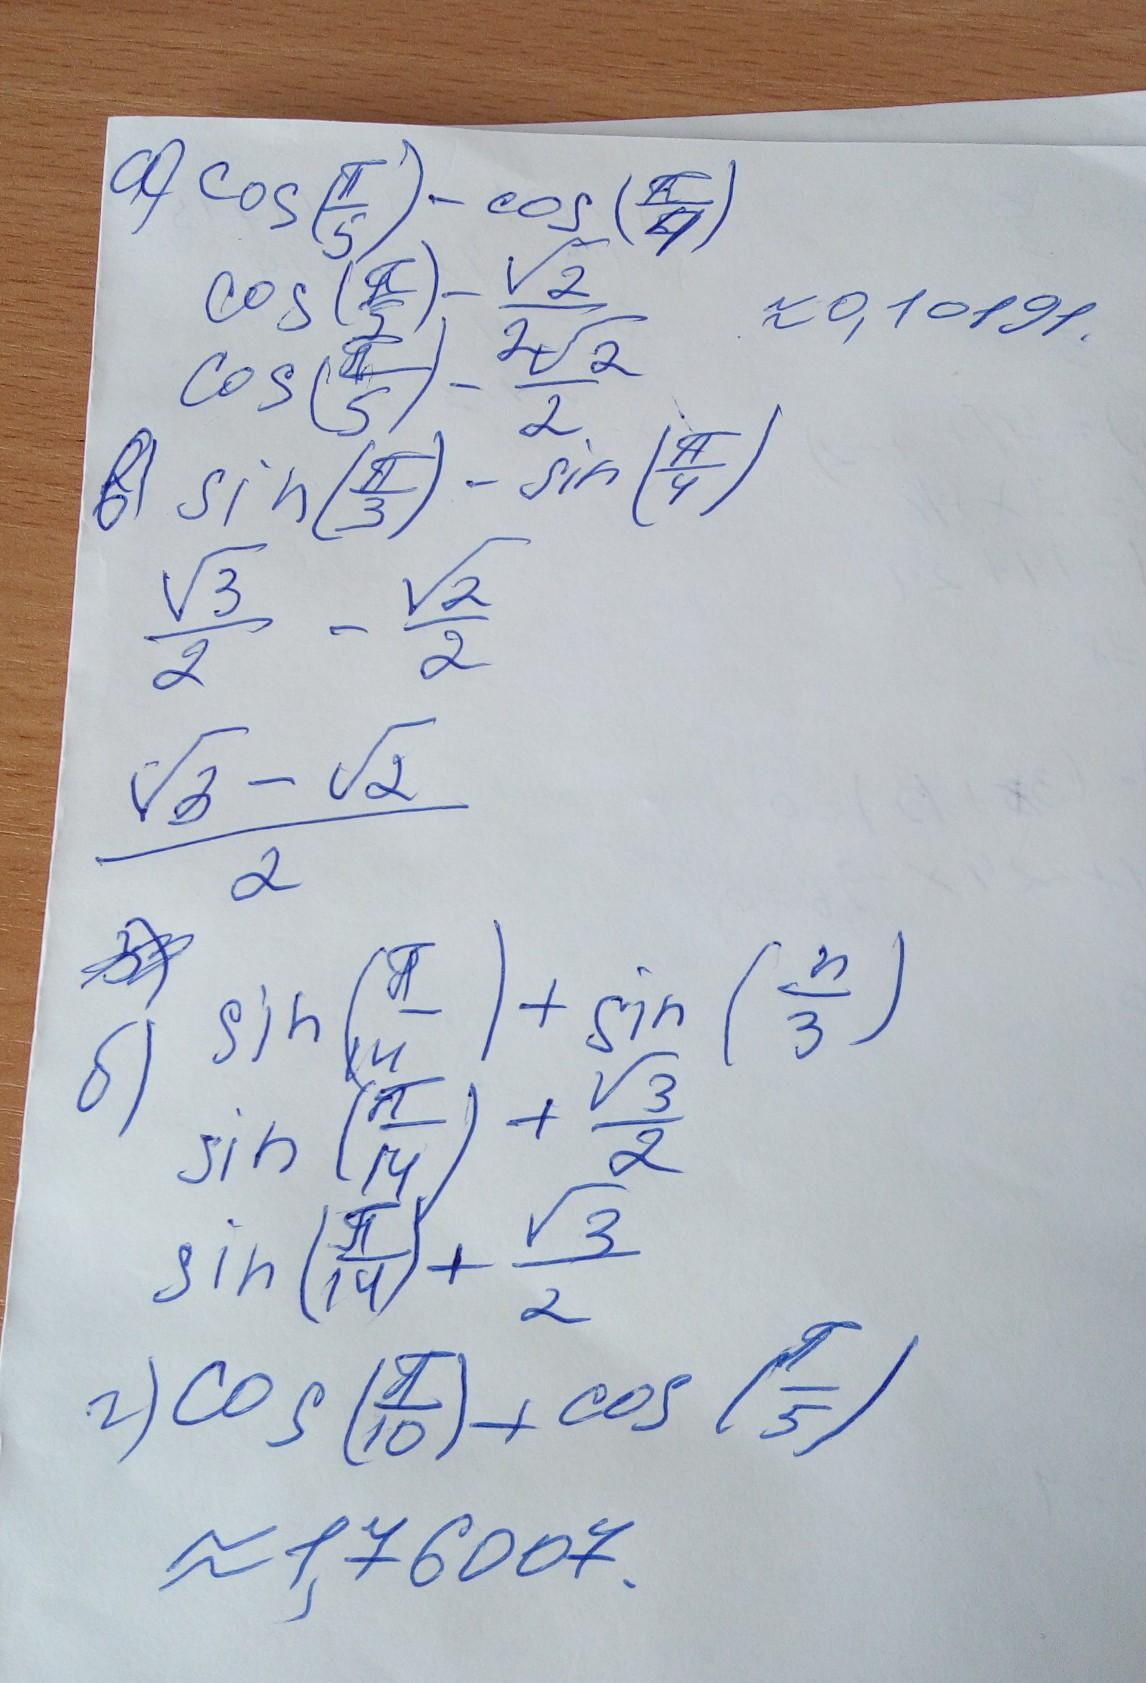 а) cos(π/5) - cos(π/4)
cos(π/5) - √2/2 ≈0,10191.
cos(π/5) - 2√2/2
в) sin(π/3) - sin(π/4)
√3/2 - √2/2
(√3 - √2)/2
б) sin(π/14) + sin(π/3)
sin(π/14) + √3/2
sin(π/14) + √3/2
г) cos(π/10) + cos(π/5)
≈1,76007.